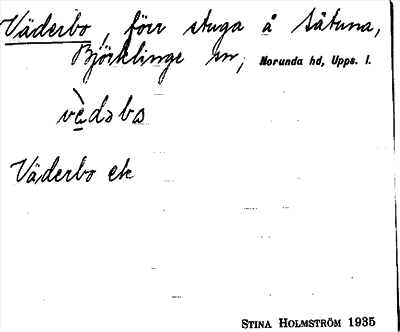 Väderbo, förr stuga å Sätuna,
Björklinge sn, Norunda hd, Upps. l.
vè̱dəbo
Väderbo ek
STINA HOLMSTRÖM 1935